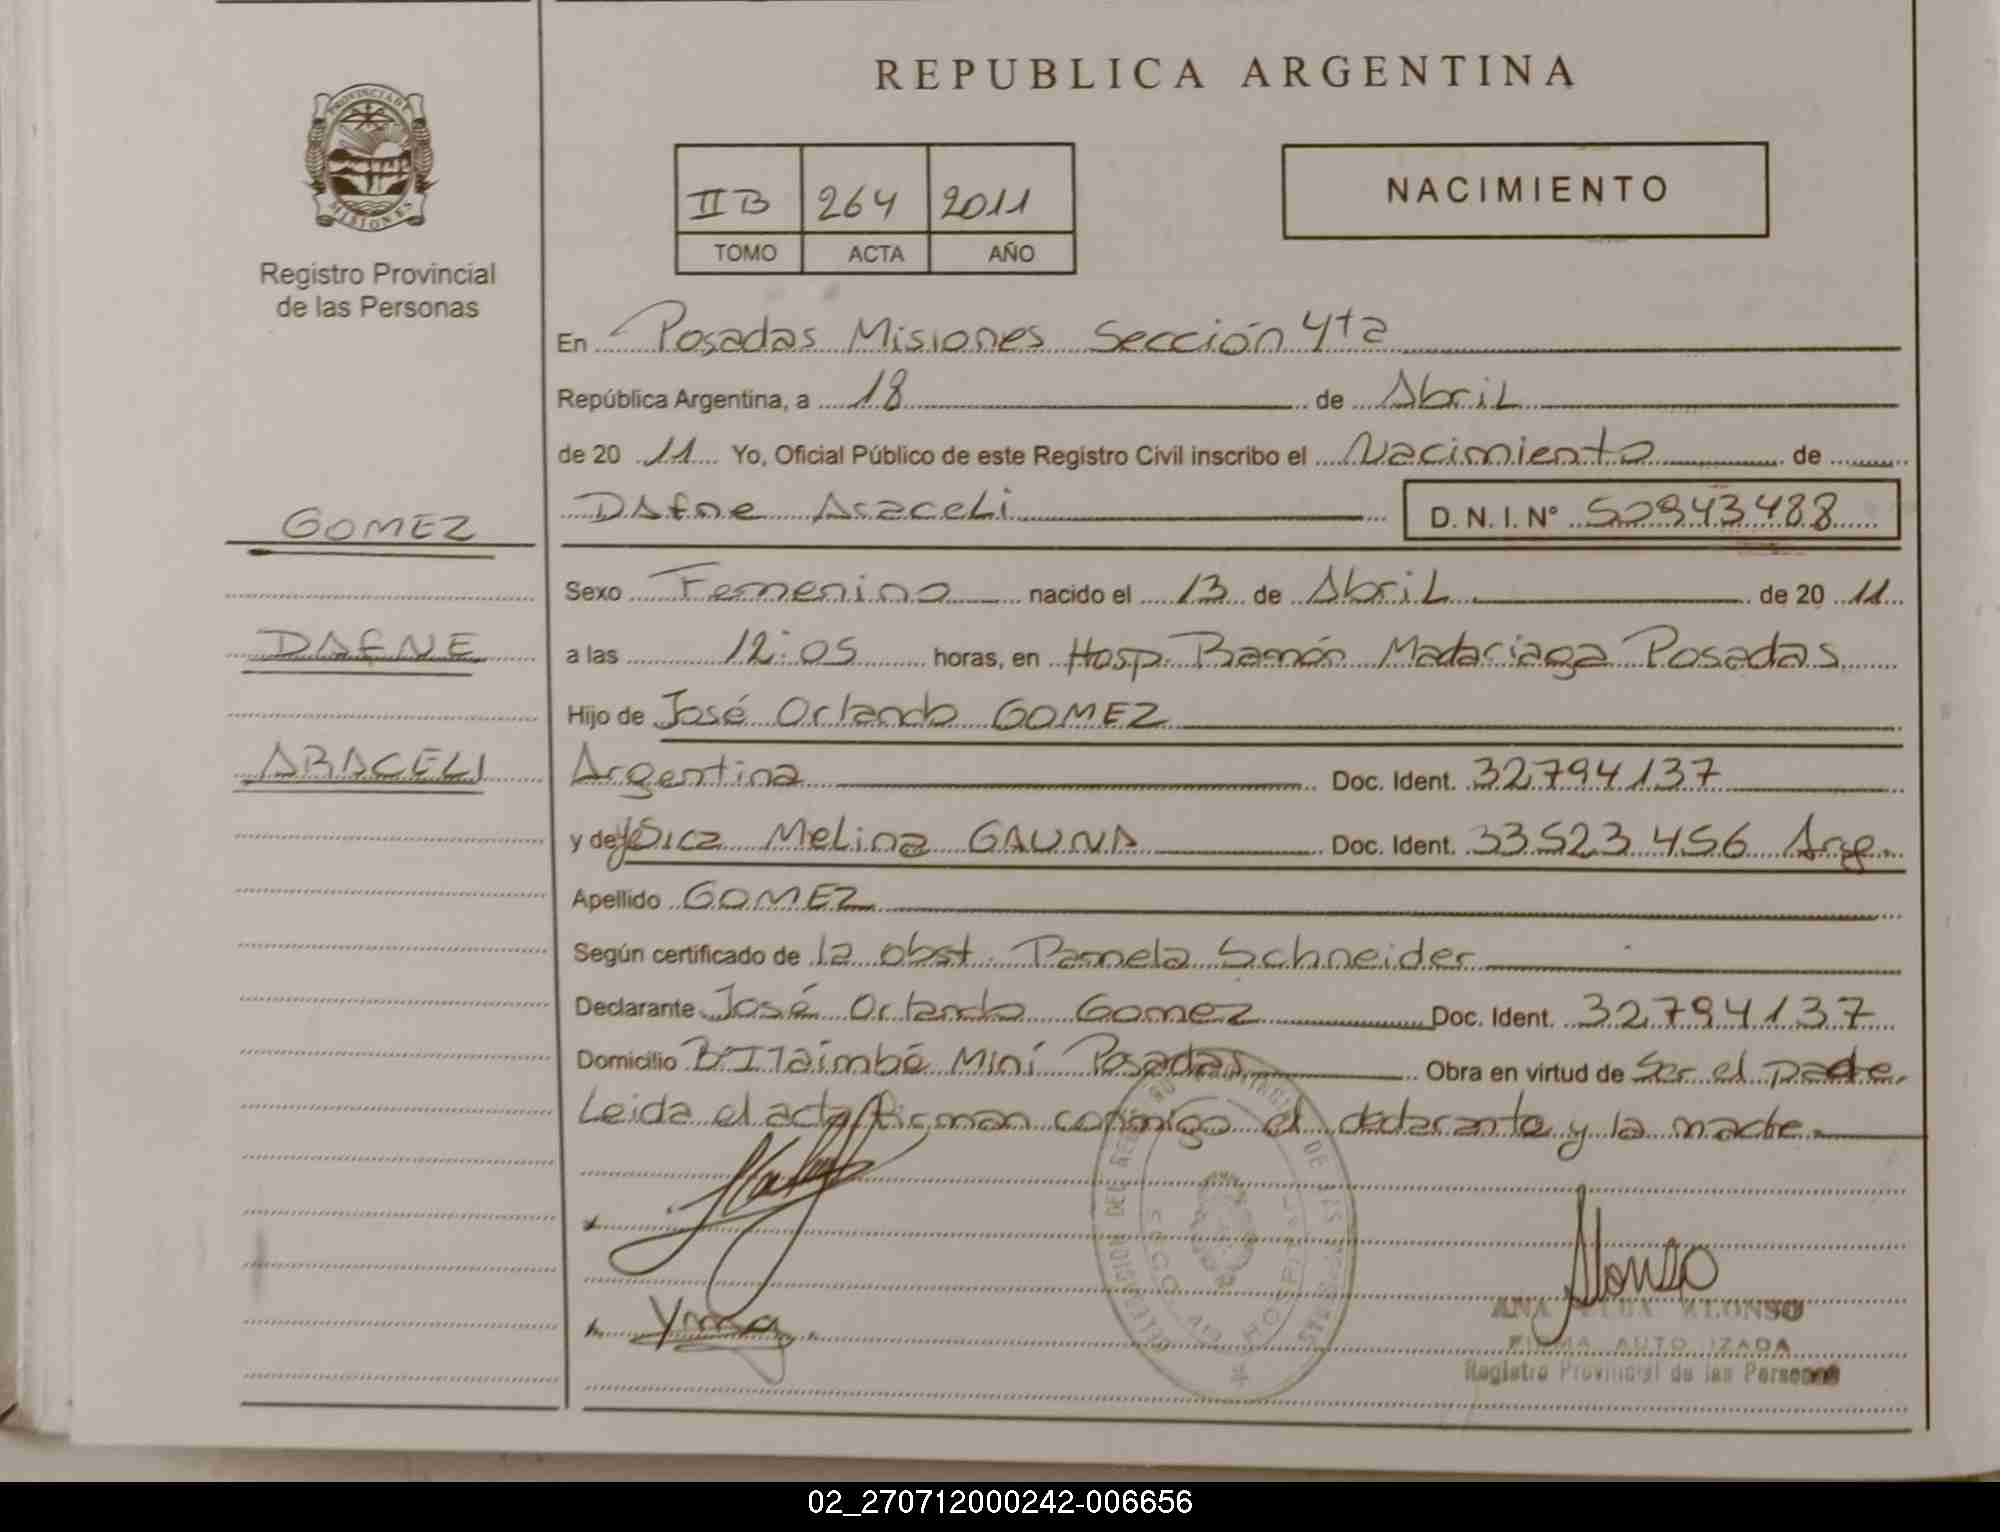 REPUBLICA ARGENTINA
PROVINCIA DE
MISIONES
Registro Provincial
de las Personas
II B 264 2011
TOMO ACTA AÑO
NACIMIENTO
En Posadas Misiones Sección 4ta
República Argentina, a 18 de Abril
de 20 11 Yo, Oficial Público de este Registro Civil inscribo el Nacimiento de
Dafne Araceli D. N. I. Nº 50943488
GOMEZ
DAFNE
ARACELI
Sexo Femenino nacido el 13 de Abril de 20 11
a las 12:05 horas, en Hosp. Ramón Madariaga Posadas
Hijo de José Orlando GOMEZ
Argentina Doc. Ident. 32794137
y de Yésica Melina GAUNA Doc. Ident. 33.523.456 Arg.
Apellido GOMEZ
Según certificado de la obst. Pamela Schneider
Declarante José Orlando Gomez Doc. Ident. 32794137
Domicilio Bº Itaimbé Miní Posadas Obra en virtud de Ser el padre.
Leida el acta firman conmigo el declarante y la madre.
Alonso
ANA ALONSO
FIRMA AUTORIZADA
Registro Provincial de las Personas
02_270712000242-006656